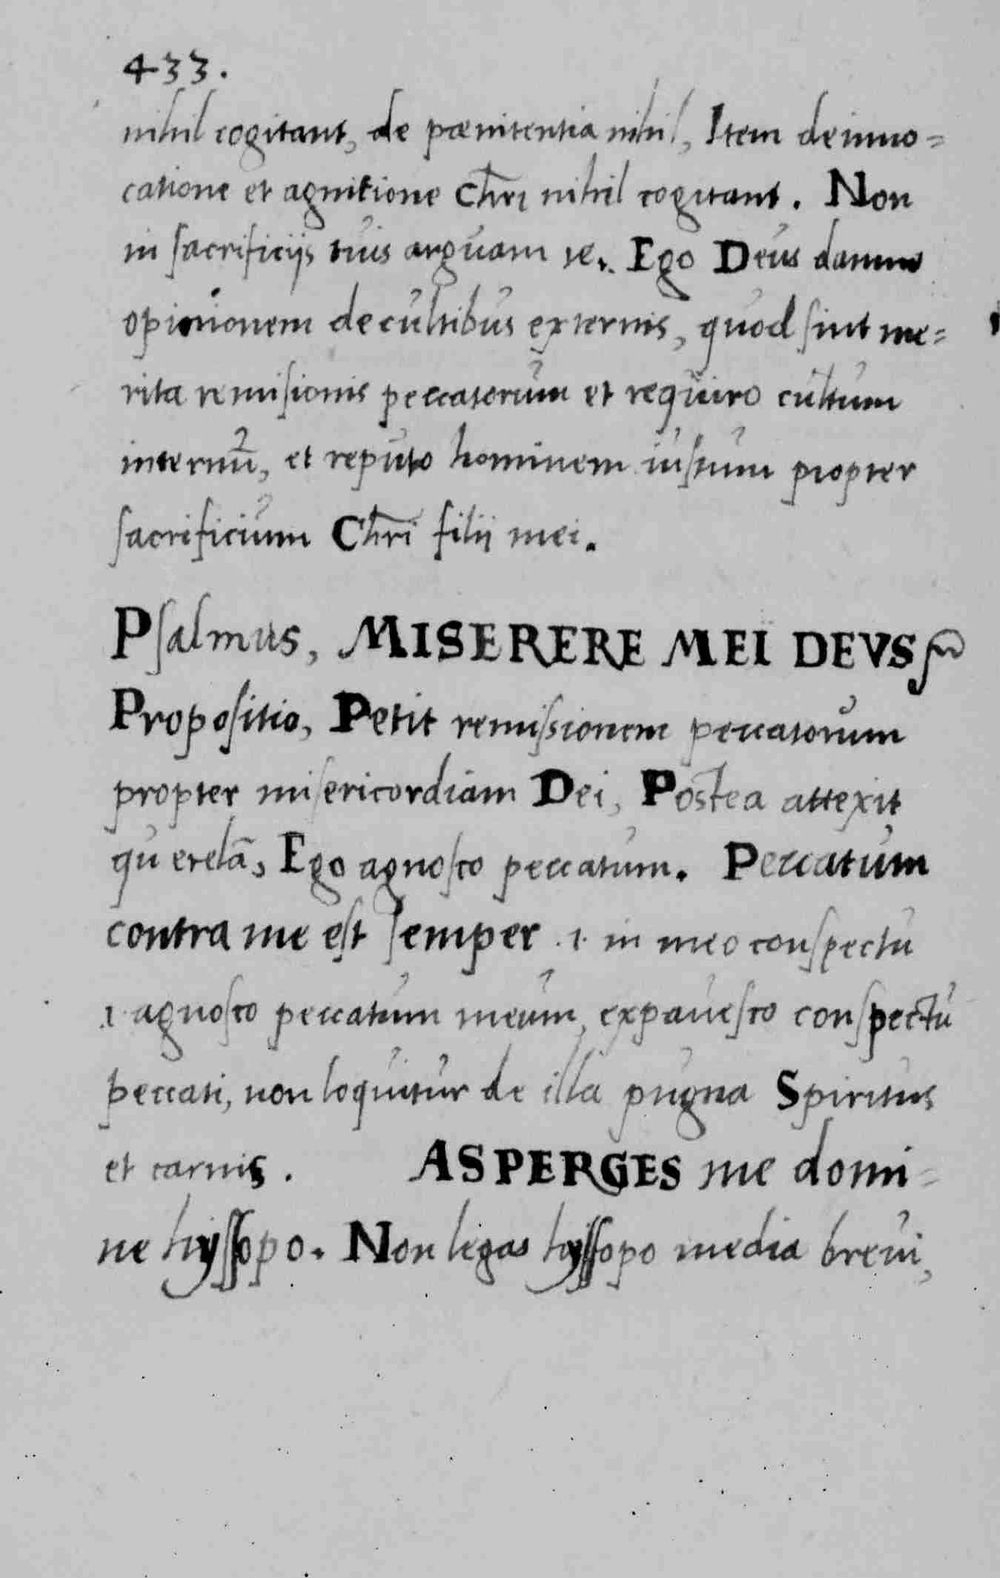 433.
nihil cogitant, de pœnitentia nihil, Item de inuo=
catione et agnitione Chri nihil cogitant. Non
in sacrificijs tuis arguam te. Ego Deus damno
opinionem de cultibus externis, quod sint me=
rita remisionis peccatorum et requiro cultum
internū, et reputo hominem iustum propter
sacrificium Chri filii mei.
Psalmus, MISERERE MEI DEVS
Propositio, Petit remissionem peccatorum
propter misericordiam Dei, Postea attexit
querelā, Ego agnosco peccatum. Peccatum
contra me est semper .1. in meo conspectu
.1. agnosco peccatum meum, expauesco conspectu
peccati, non loquitur de illa pugna Spiritus
et carnis. ASPERGES me domi=
ne hyssopo. Non legas hyssopo media breui,